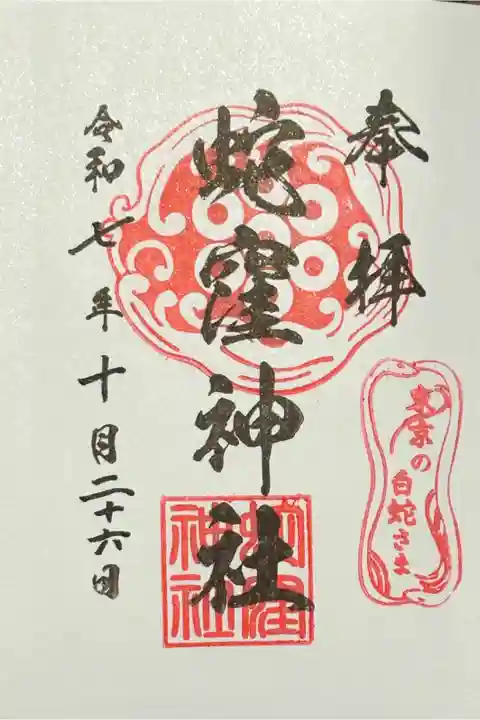 奉拝
蛇窪神社
令和七年十月二十六日
東京の
白蛇さま
蛇窪
神社